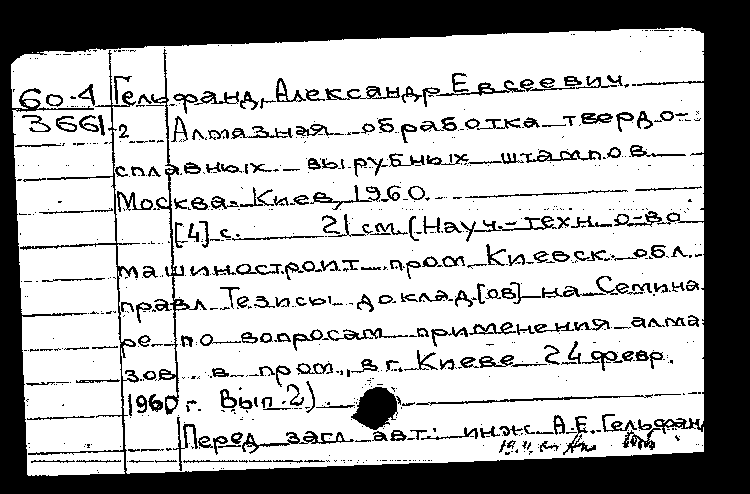 60-4 Гельфанд, Александр Евсеевич.
3661-2 Алмазная обработка твердо-
сплавных вырубных штампов.
Москва-Киев, 1960.
[4] с. 21 см. (Науч.-техн. о-во
машиностроит. пром. Киевск. обл.
правл. Тезисы доклад.[ов] на Семина
ре по вопросам применения алма
зов в пром., в г. Киеве 24 февр.
1960 г. Вып. 2).
Перед загл. авт.: инж. А.Е. Гельфан